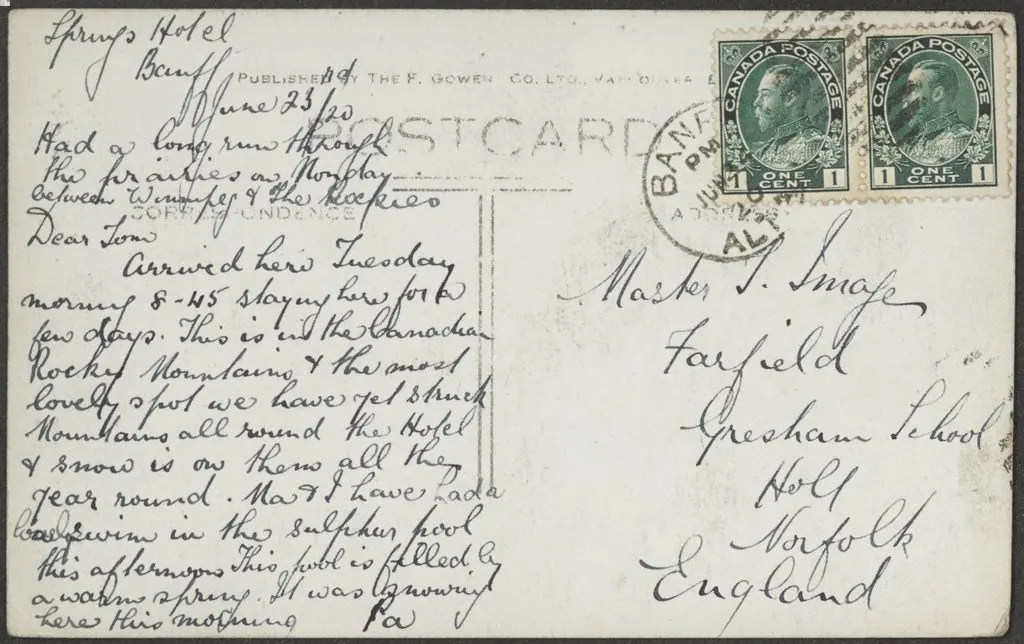 Springs Hotel
Banff
June 23rd/20
Had a long run through
the prairies on Monday
between Winnipeg & The Rockies
Dear Tom
Arrived here Tuesday
morning 8-45 staying here for a
few days. This is in the Canadian
Rocky Mountains & the most
lovely spot we have yet struck
Mountains all round the Hotel
& snow is on them all the
year round. Ma & I have had a
swim in the sulphur pool
this afternoon This pool is filled by
a warm spring. It was snowing
here this morning Pa
PUBLISHED BY THE F. GOWEN CO. LTD.
POSTCARD
CORRESPONDENCE
ADDRESS
CANADA POSTAGE
1 ONE CENT 1
CANADA POSTAGE
1 ONE CENT 1
BANFF
PM
JUN 24
ALTA
Master T. Image
Farfield
Gresham School
Holt
Norfolk
England